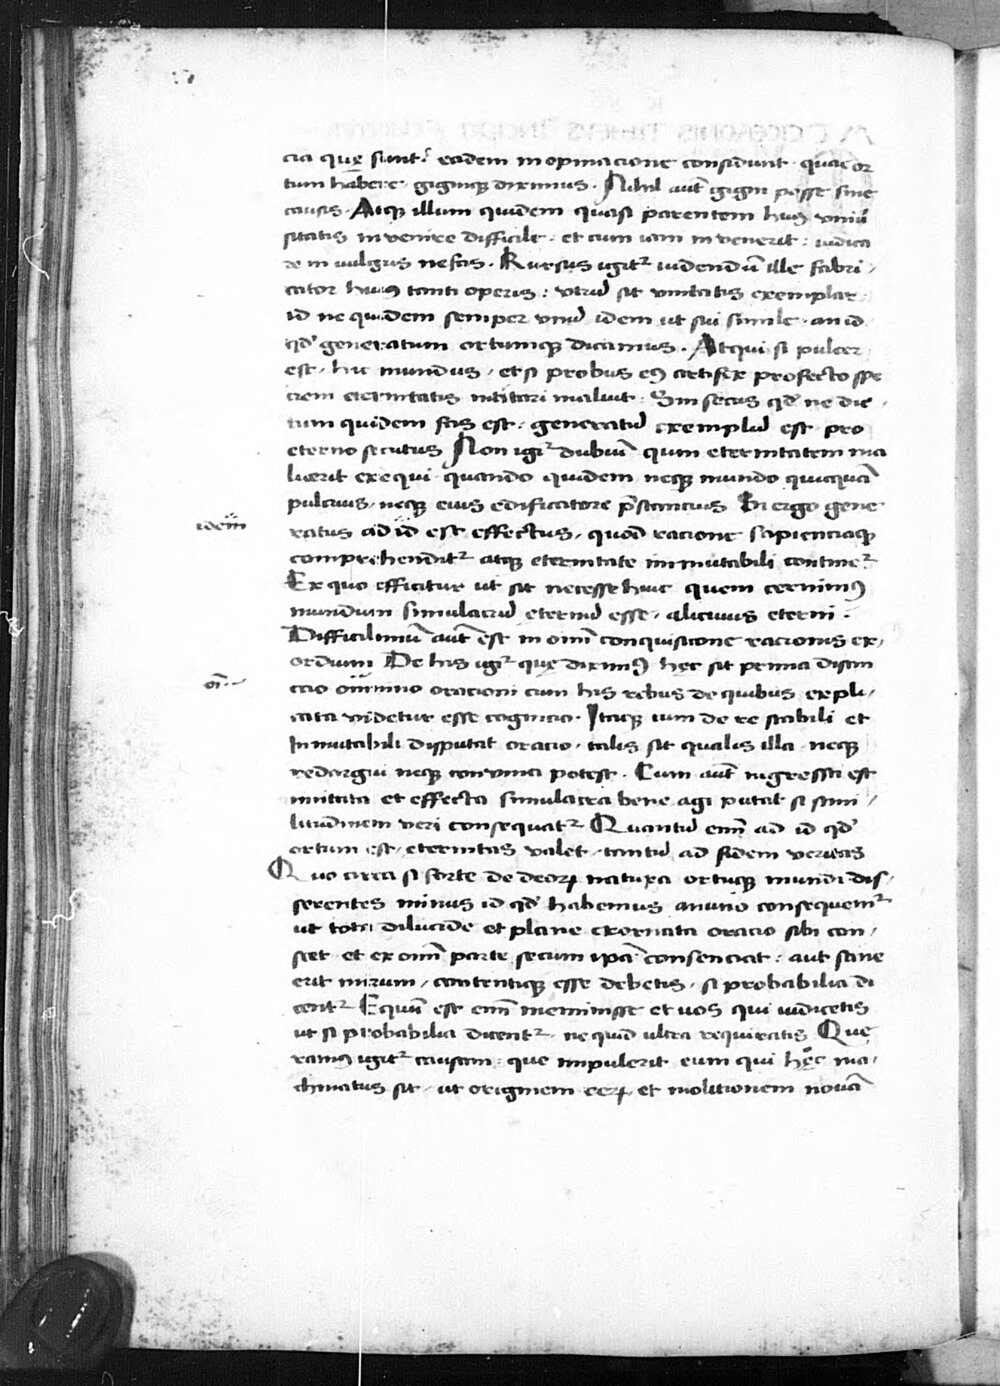 cia que sunt: eadem in opinacione considunt · quae or
tum habere · gigniqꝫ diximus · Nihil aut̄ gigni posse sine
causis · Atqꝫ illum quidem quasi parentem huiꝰ vniũ
sitatis invenire difficile · et cum iam invenerit: iudica
re in vulgus nefas · Rursus igitᷣ uidendũ ille fabri /
cator huiꝰ tanti operis: vtrũ sit vnitatis exemplar
id ne quidem semper vnũ idem ut sui simile · an id
qđ generatum ortumqꝫ dicamus · Atqui si pulcer
est · hic mundus / et si probus eiꝰ artifex profecto spe
ciem eternitatis imitari maluit: Sin secus qđ ne dic /
tum quidem fas est · generatũ exemplũ est pro
eterno secutus Non igiᷣ dubiũ quin eternitatem ma
luerit exequi · quando quidem neqꝫ mundo quicquã
pulcius · neqꝫ eius edificatore p̃stancius Hi ergo gene
idem̃
ratus ad id est effectus / quod racione sapienciaqꝫ
comprehenditᷣ atqꝫ eternitate immutabili contineᷣ
Ex quo efficitur ut sit necesse huic quem cernimꝰ
mundum simulacrũ eternũ esse / alicuius eterni ·
Difficilimũ aut̄ est in omni conquisicione racionis ex /
ordium De his igiᷣ que diximꝰ hęc sit prima distin
oĩ
ccio omnino oracioni cum his rebus de quibus expli /
cata videtur esse cognicio · Itaqꝫ cum de re stabili et
Inmutabili disputat oracio · talis sit qualis illa · neqꝫ
redargui neqꝫ convinci potest · Cum aut̄ ingressa est
imitata et effecta simulacra bene agi putat si simi /
litudinem veri consequatᷣ Quantũ enĩ ad id qđ
ortum est · eternitas valet · tantũ ad fidem veritas
Quo circa si forte de deoꝝ natura ortuqꝫ mundi dis /
serentes minus id qđ habemus animo consequemᷣ
ut tota dilucide et plane exornata oracio sibi con /
stet · et ex omni parte secum ipsa consenciat: aut sane
erit mirum / contentiqꝫ esse debetis / si probabilia di
centᷣ Equũ est enĩ meminisse et uos qui iudicetis
ut si probabilia dicentᷣ · ne quid ultra requiratis Que
ramꝰ igitᷣ causam · que impulerit eum qui hęc ma /
chinatus sit · ut originem reꝝ et molitionem novã